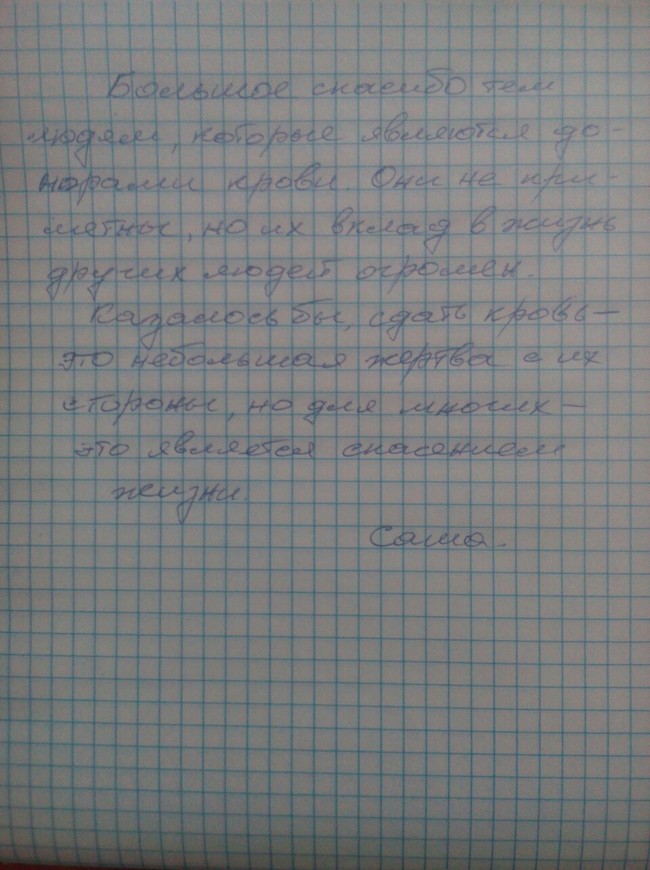 Большое спасибо тем
людям, которые являются до-
норами крови. Они не при-
метны, но их вклад в жизнь
других людей огромен.
Казалось бы, сдать кровь –
это небольшая жертва с их
стороны, но для многих –
это является спасением
жизни.
Саша.